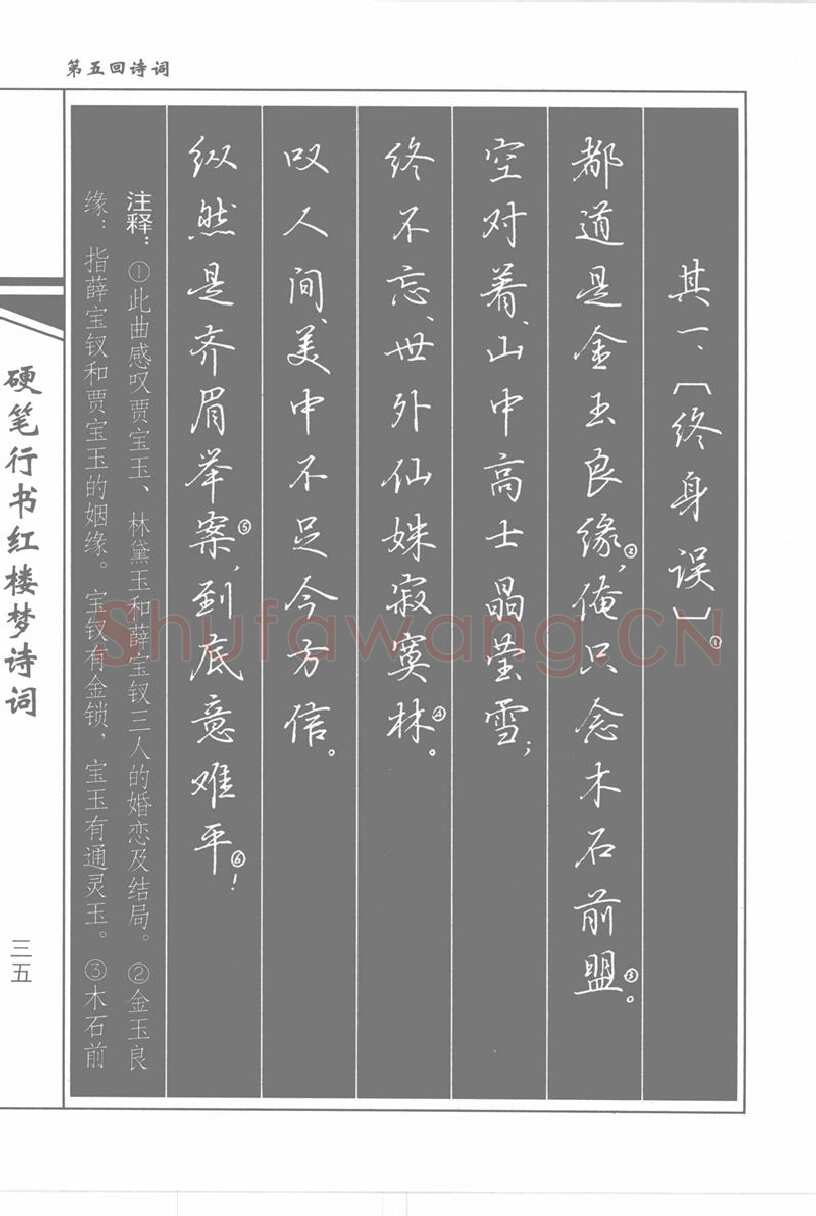 第五回诗词
其一、〔终身误〕①
都道是金玉良缘②,俺只念木石前盟③。
空对着、山中高士晶莹雪;
终不忘、世外仙姝寂寞林④。
叹人间、美中不足今方信。
纵然是齐眉举案⑤,到底意难平⑥!
注释：①此曲感叹贾宝玉、林黛玉和薛宝钗三人的婚恋及结局。②金玉良
缘：指薛宝钗和贾宝玉的姻缘。宝钗有金锁，宝玉有通灵玉。③木石前
硬笔行书红楼梦诗词
三五
Shufawang.CN